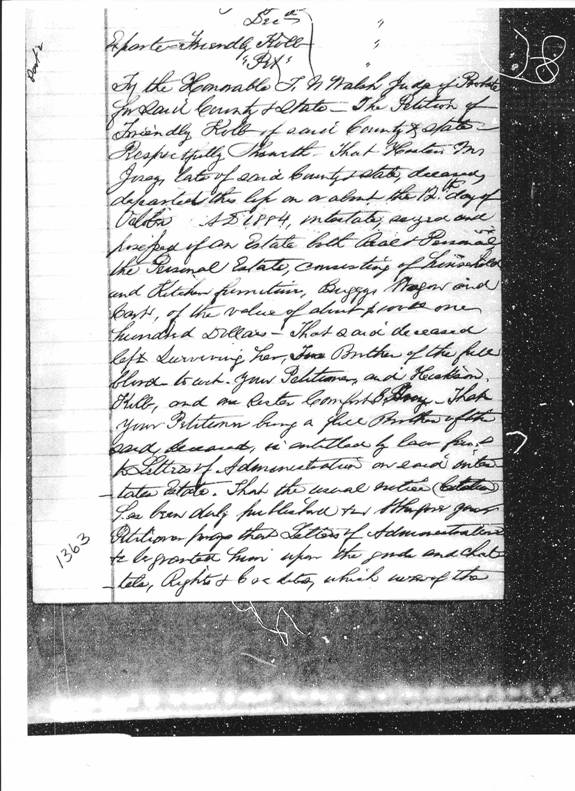 Dec'd "
Exparte Friendly Kolb "
"Pet" "
To the Honorable T. N. Walsh Judge of Probate
for said County & State – The Petition of
Friendly Kolb of said County & State –
Respectfully Sheweth. That
Josey, late of said County & State, deceased,
departed this life on or about the 12th day of
October AD 1884, intestate, seized and
possessed of an Estate both Real & Personal
the Personal Estate, consisting of household
and Kitchen furniture, Buggy, Wagon and
Cart, of the value of about one
hundred Dollars – That said deceased
left surviving her, Two Brother of the full
blood to wit. Your Petitioner, and
Kolb, and one sister Comfort – That
your Petitioner being a full Brother of the
said, deceased, is entitled by law first
to Letters of Administration on said intes
-tates Estate. That the usual notice (Citation
has been duly published & Therefore your
Petitioner prays that Letters of Administration
to be granted him upon the goods and chat
-tels, Rights & Credits, which were of the
1363